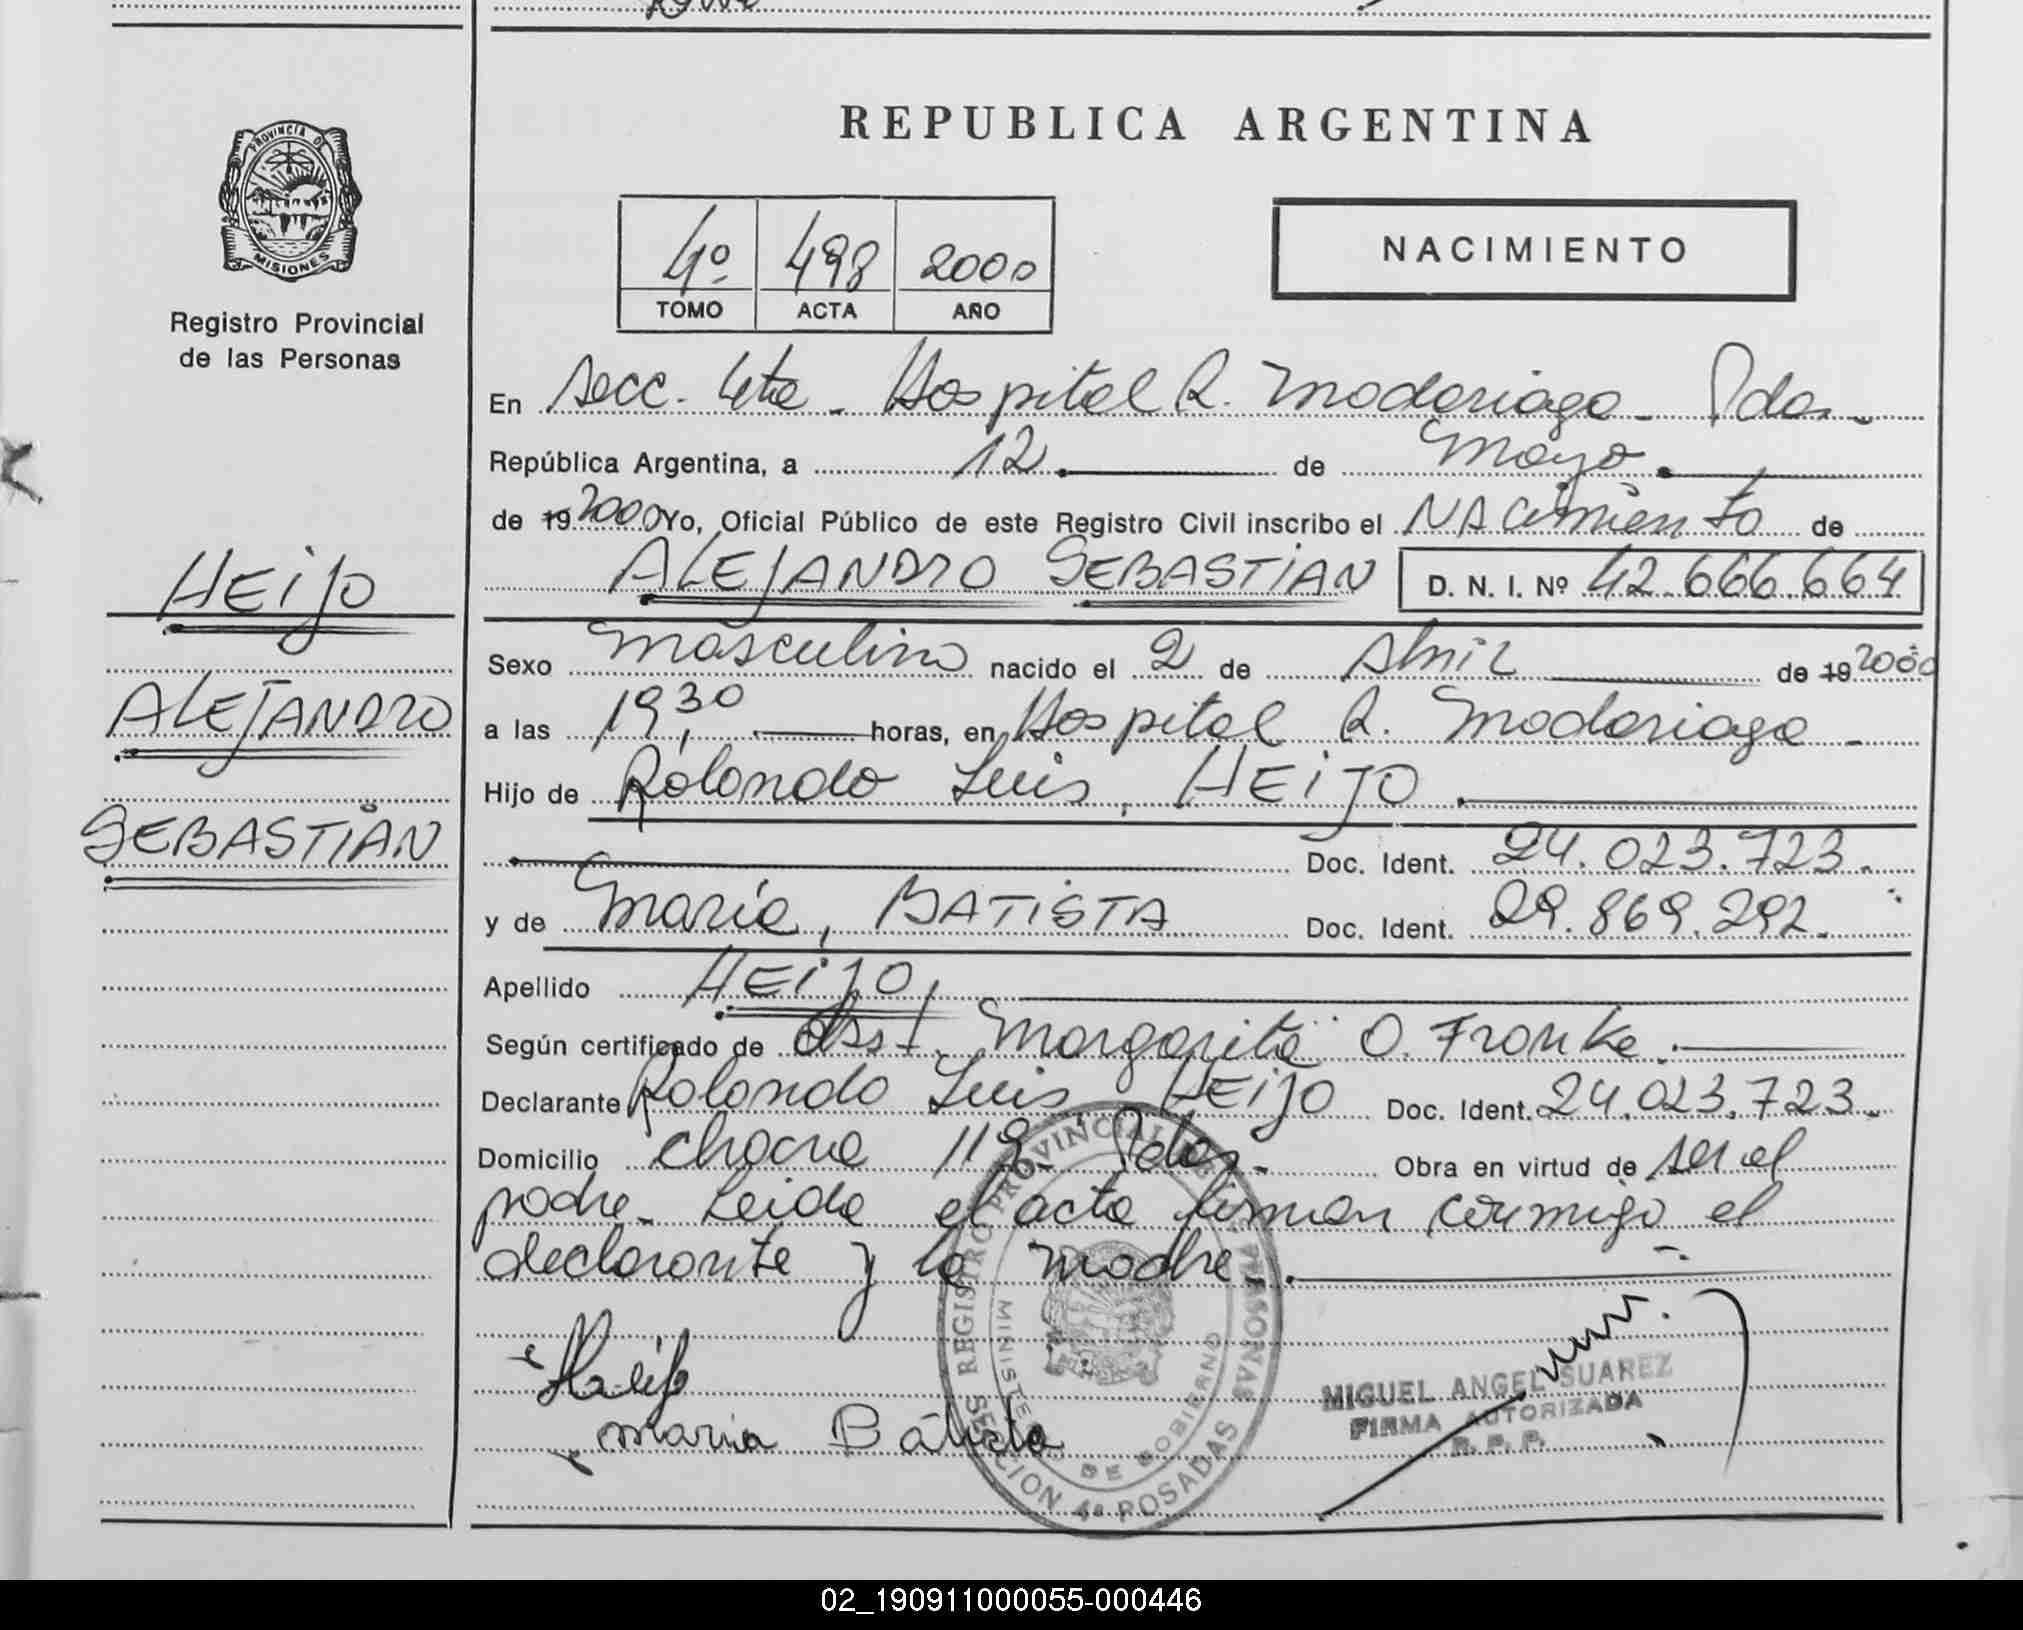 REPUBLICA ARGENTINA
PROVINCIA DE
MISIONES
Registro Provincial
de las Personas
4º 498 2000
TOMO ACTA AÑO
NACIMIENTO
En Secc. 4ta - Hospital R. Madariaga - Pdas -
República Argentina, a 12 de Mayo
de 19 2000 Yo, Oficial Público de este Registro Civil inscribo el NACimiento de
ALEJANDRO SEBASTIAN D. N. I. Nº 42.666.664
HEIJO
ALEJANDRO
SEBASTIAN
Sexo masculino nacido el 2 de Abril de 19 2000
a las 19,30 horas, en Hospital R. Madariaga -
Hijo de Rolando Luis, HEIJO
Doc. Ident. 24.023.723.
y de María, BATISTA Doc. Ident. 29.869.292.
Apellido HEIJO,
Según certificado de Obst. Margarita O. Franke.
Declarante Rolando Luis HEIJO Doc. Ident. 24.023.723.
Domicilio Chacra 119 - Pdas. - Obra en virtud de ser el
padre - Leida el acta firman conmigo el
declarante y la madre.
Heijo
maria Batista
REGISTRO PROVINCIAL DE LAS PERSONAS
MINISTERIO DE GOBIERNO
SECCION 4a POSADAS
MIGUEL ANGEL SUAREZ
FIRMA AUTORIZADA
R. P. P.
02_190911000055-000446